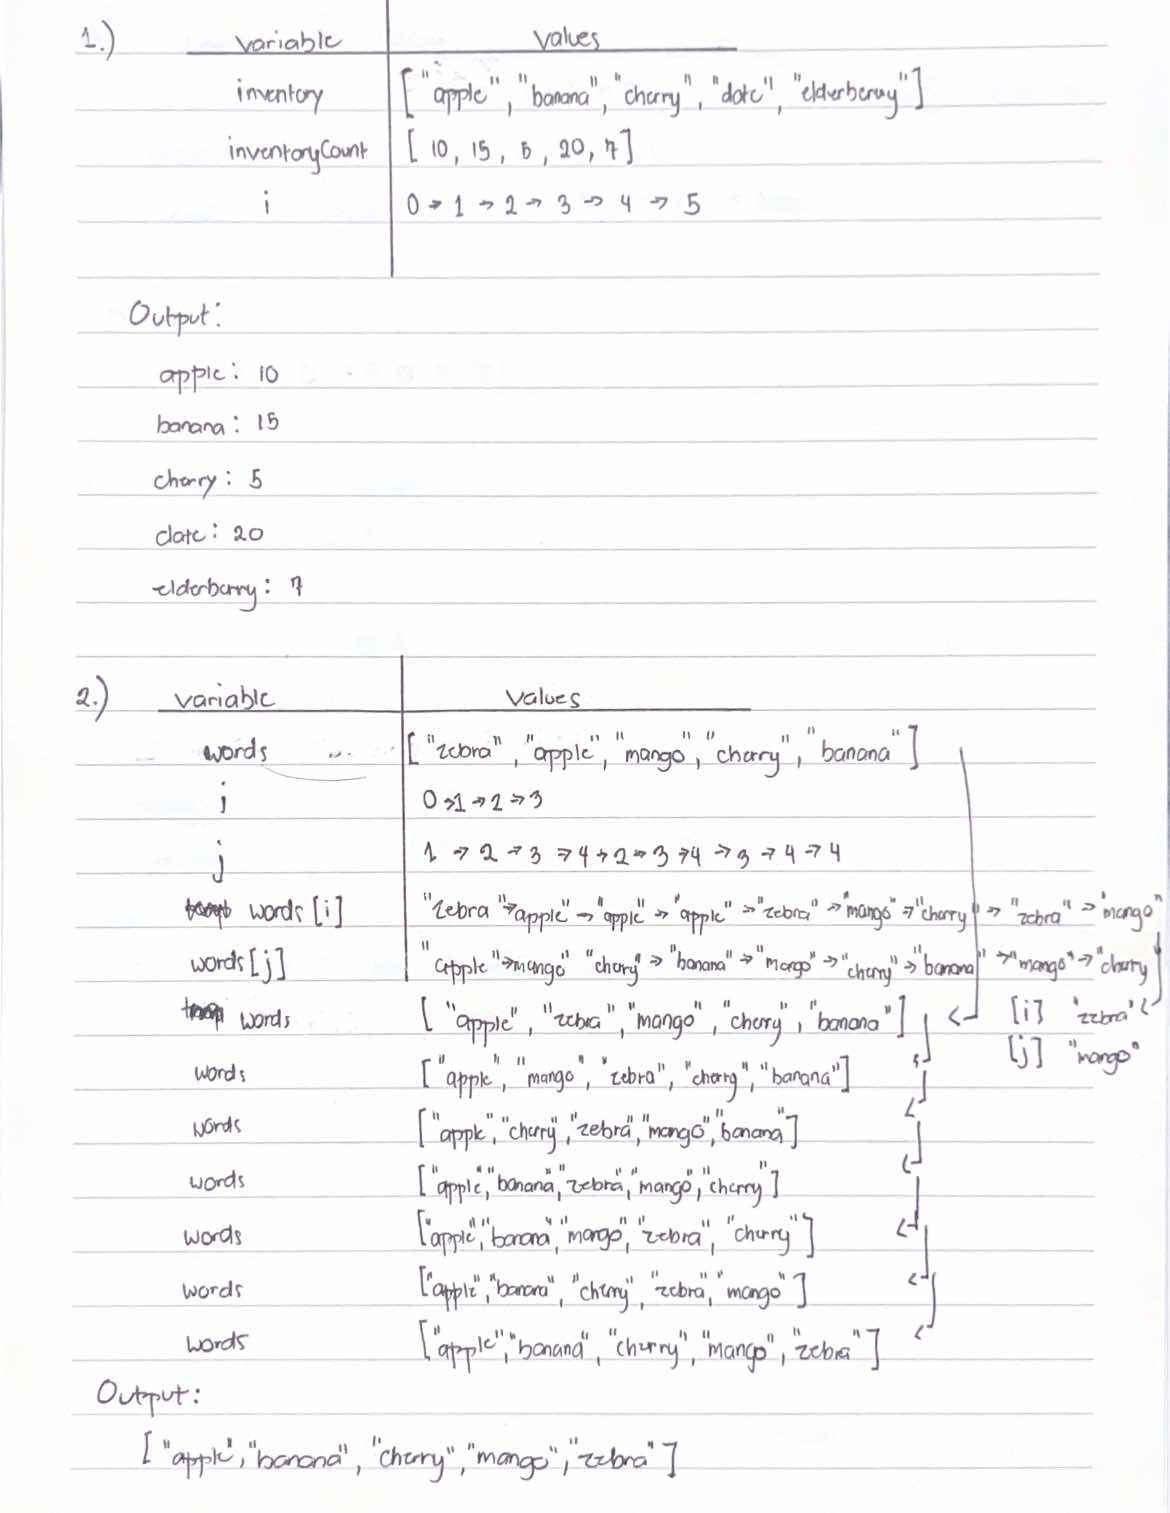 1.) variable values
inventory ["apple", "banana", "cherry", "date", "elderberry"]
inventoryCount [10, 15, 5, 20, 7]
i 0 → 1 → 2 → 3 → 4 → 5
Output:
apple: 10
banana: 15
cherry: 5
date: 20
elderberry: 7
2.) variable values
words ["zebra", "apple", "mango", "cherry", "banana"]
i 0 → 1 → 2 → 3
j 1 → 2 → 3 → 4 → 2 → 3 → 4 → 3 → 4 → 4
words [i] "zebra" → apple" → "apple" → "apple" → "zebra" → "mango" → "cherry" → "zebra" → "mango"
words [j] "apple" → mango" "cherry" → "banana" → "mango" → "cherry" → "banana" → "mango" → "cherry
words ["apple", "zebra", "mango", "cherry", "banana"] [i] "zebra"
[j] "mango"
words ["apple", "mango", "zebra", "cherry", "banana"]
words ["apple", "cherry", "zebra", "mango", "banana"]
words ["apple", "banana", "zebra", "mango", "cherry"]
words ["apple", "banana, "mango", "zebra", "cherry"]
words ["apple", "banana", "cherry", "zebra", "mango"]
words ["apple", "banana", "cherry", "mango", "zebra"]
Output:
["apple", "banana", "cherry", "mango", "zebra"]